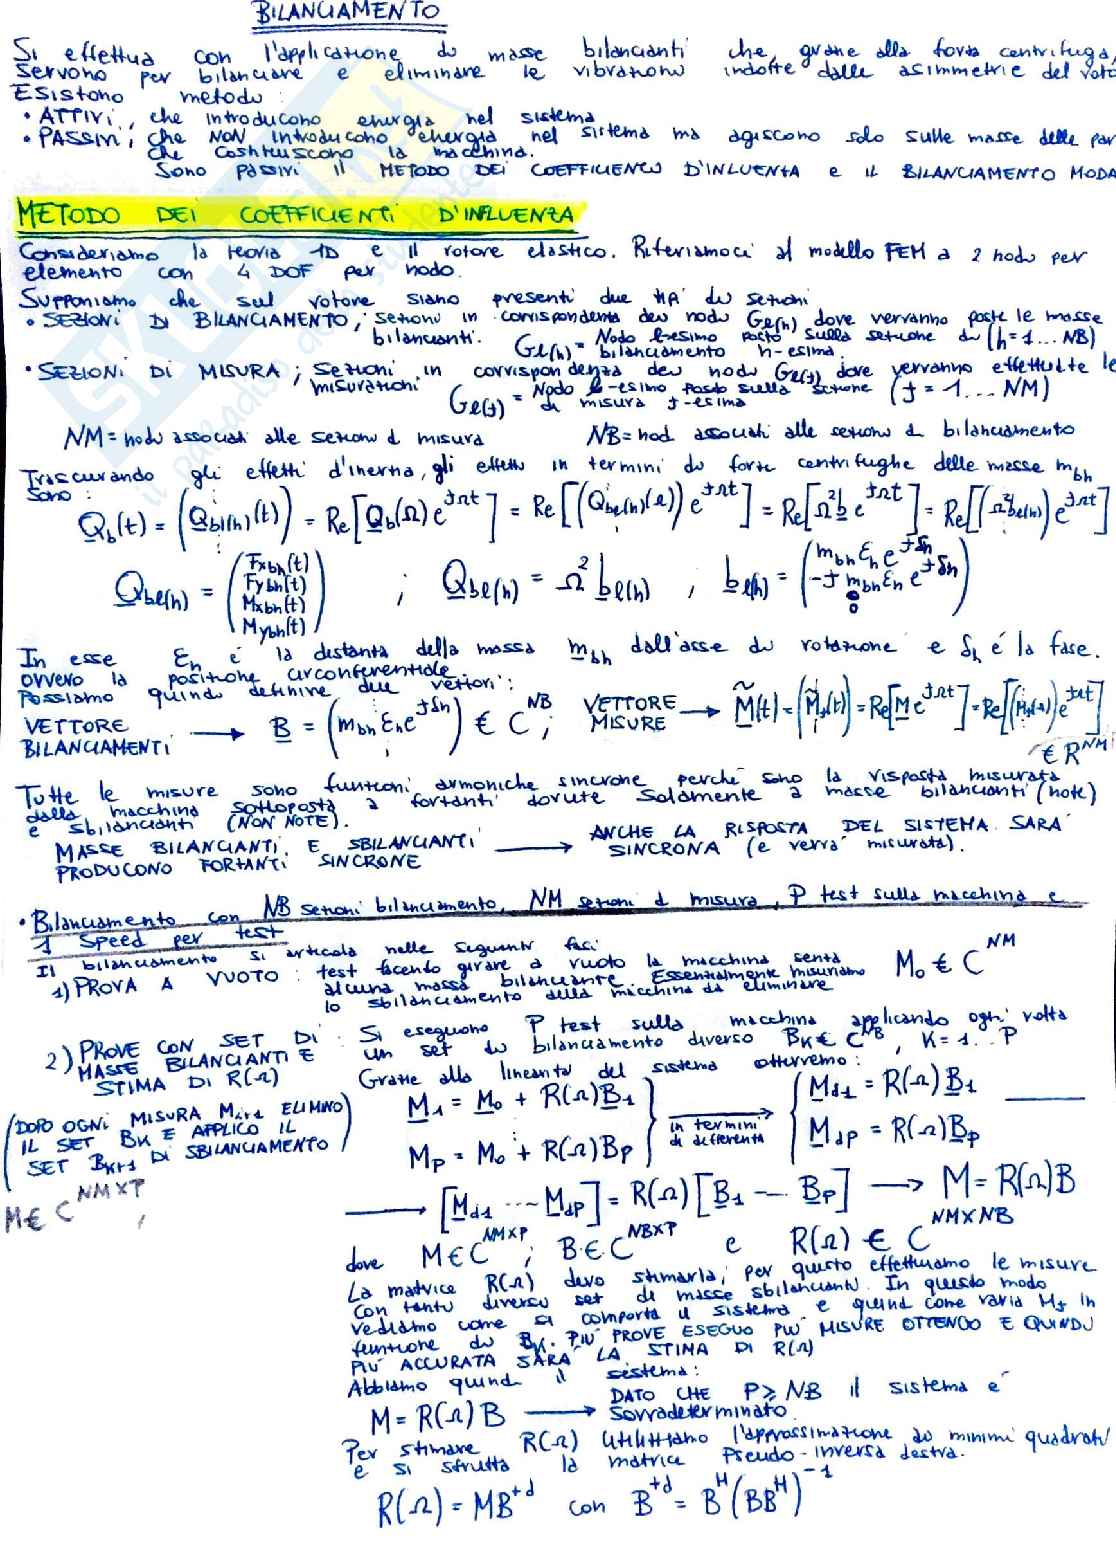 BILANCIAMENTO
Si effettua con l'applicazione di masse bilancianti che, grazie alla forza centrifuga,
servono per bilanciare e eliminare le vibrazioni indotte dalle asimmetrie del roto
Esistono metodi:
• ATTIVI, che introducono energia nel sistema
• PASSIVI, che NON introducono energia nel sistema ma agiscono solo sulle masse delle par
che costituiscono la macchina.
Sono passivi il METODO DEI COEFFICIENTI D'INFLUENZA e il BILANCIAMENTO MODA
METODO DEI COEFFICIENTI D'INFLUENZA
Consideriamo la teoria 1D e il rotore elastico. Riferiamoci al modello FEM a 2 nodi per
elemento con 4 DOF per nodo.
Supponiamo che sul rotore siano presenti due tipi di sezioni
• SEZIONI DI BILANCIAMENTO; sezioni in corrispondenza dei nodi Ge(h) dove verranno poste le masse
bilancianti. Ge(h) = Nodo l-esimo posto sulla sezione di (h=1...NB)
bilanciamento h-esima.
• SEZIONI DI MISURA; sezioni in corrispondenza dei nodi Ge(j) dove verranno effettuate le
misurazioni. Ge(j) = Nodo l-esimo posto sulla sezione (j = 1... NM)
di misura j-esima
NM = nodi associati alle sezioni di misura NB = nodi associati alle sezioni di bilanciamento
Trascurando gli effetti d'inerzia, gli effetti in termini di forze centrifughe delle masse m_bh
sono:
Q_b(t) = (Q_bl(h)(t)) = Re[Q_b(Ω) e^{jΩt}] = Re[(Q_be(h)(Ω)) e^{jΩt}] = Re[Ω² b e^{jΩt}] = Re[(Ω² b_e(h)) e^{jΩt}]
Q_be(h) = (Fx_bh(t) Fy_bh(t) Mx_bh(t) My_bh(t)) ; Q_be(h) = Ω² b_e(h) , b_e(h) = (m_bh ε_h e^{jδh} -j m_bh ε_h e^{jδh} 0 0)
In esse ε_h è la distanza della massa m_bh dall'asse di rotazione e δ_h é la fase.
ovvero la posizione circonferenziale.
Possiamo quindi definire due vettori:
VETTORE BILANCIAMENTI → B = (m_bh ε_h e^{jδh}) € C^NB ; VETTORE MISURE → M̃(t) = (M̃_j(t)) = Re[M e^{jΩt}] = Re[(M_j(Ω)) e^{jΩt}]
€ R^NM
Tutte le misure sono funzioni armoniche sincrone perché sono la risposta misurata
dalla macchina sottoposta a forzanti dovute solamente a masse bilancianti (note)
e sbilancianti (NON NOTE).
MASSE BILANCIANTI E SBILANCIANTI → ANCHE LA RISPOSTA DEL SISTEMA SARA'
PRODUCONO FORZANTI SINCRONE SINCRONA (e verrà misurata).
• Bilanciamento con NB sezioni bilanciamento, NM sezioni di misura, P test sulla macchina e
1 Speed per test
Il bilanciamento si articola nelle seguenti fasi
1) PROVA A VUOTO : test facendo girare a vuoto la macchina senza M₀ € C^NM
alcuna massa bilanciante. Essenzialmente misuriamo
lo sbilanciamento della macchina da eliminare
2) PROVE CON SET DI : Si eseguono P test sulla macchina applicando ogni volta
MASSE BILANCIANTI E un set di bilanciamento diverso B_K € C^NB, K = 1...P
STIMA DI R(Ω) Grazie alla linearità del sistema otterremo:
(DOPO OGNI MISURA M_k+1 ELIMINO
IL SET B_K E APPLICO IL
SET B_K+1 DI SBILANCIAMENTO)
M € C^{NM×P} ,
M₁ = M₀ + R(Ω)B₁ M_d1 = R(Ω)B₁
in termini di differenza
M_P = M₀ + R(Ω)B_P M_dP = R(Ω)B_P
→ [M_d1 ... M_dP] = R(Ω)[B₁ --- B_P] → M = R(Ω)B
dove M € C^{NM×P} ; B € C^{NB×P} e R(Ω) € C^{NM×NB}
La matrice R(Ω) devo stimarla, per questo effettuiamo le misure
con tanti diversi set di masse sbilancianti. In questo modo
vediamo come si comporta il sistema e quindi come varia M_j in
funzione di B_K. PIU' PROVE ESEGUO PIU' MISURE OTTENGO E QUINDI
PIU' ACCURATA SARA' LA STIMA DI R(Ω)
Abbiamo quindi il sistema:
M = R(Ω)B → DATO CHE P ⩾ NB il sistema e'
sovradeterminato.
Per stimare R(Ω) utilizziamo l'approssimazione ai minimi quadrati
e si sfrutta la matrice pseudo-inversa destra.
R(Ω) = MB^{+d} con B^{+d} = B^H(BB^H)^{-1}